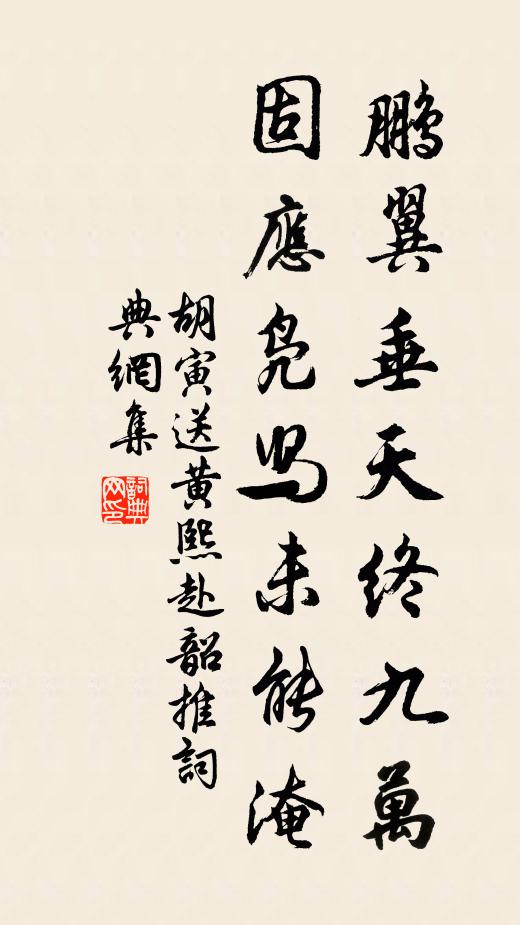 鵬翼垂天終九萬
固應鳧舄未能淹
胡寅送黃熙赴韶推詞
典網集
詞典
网印